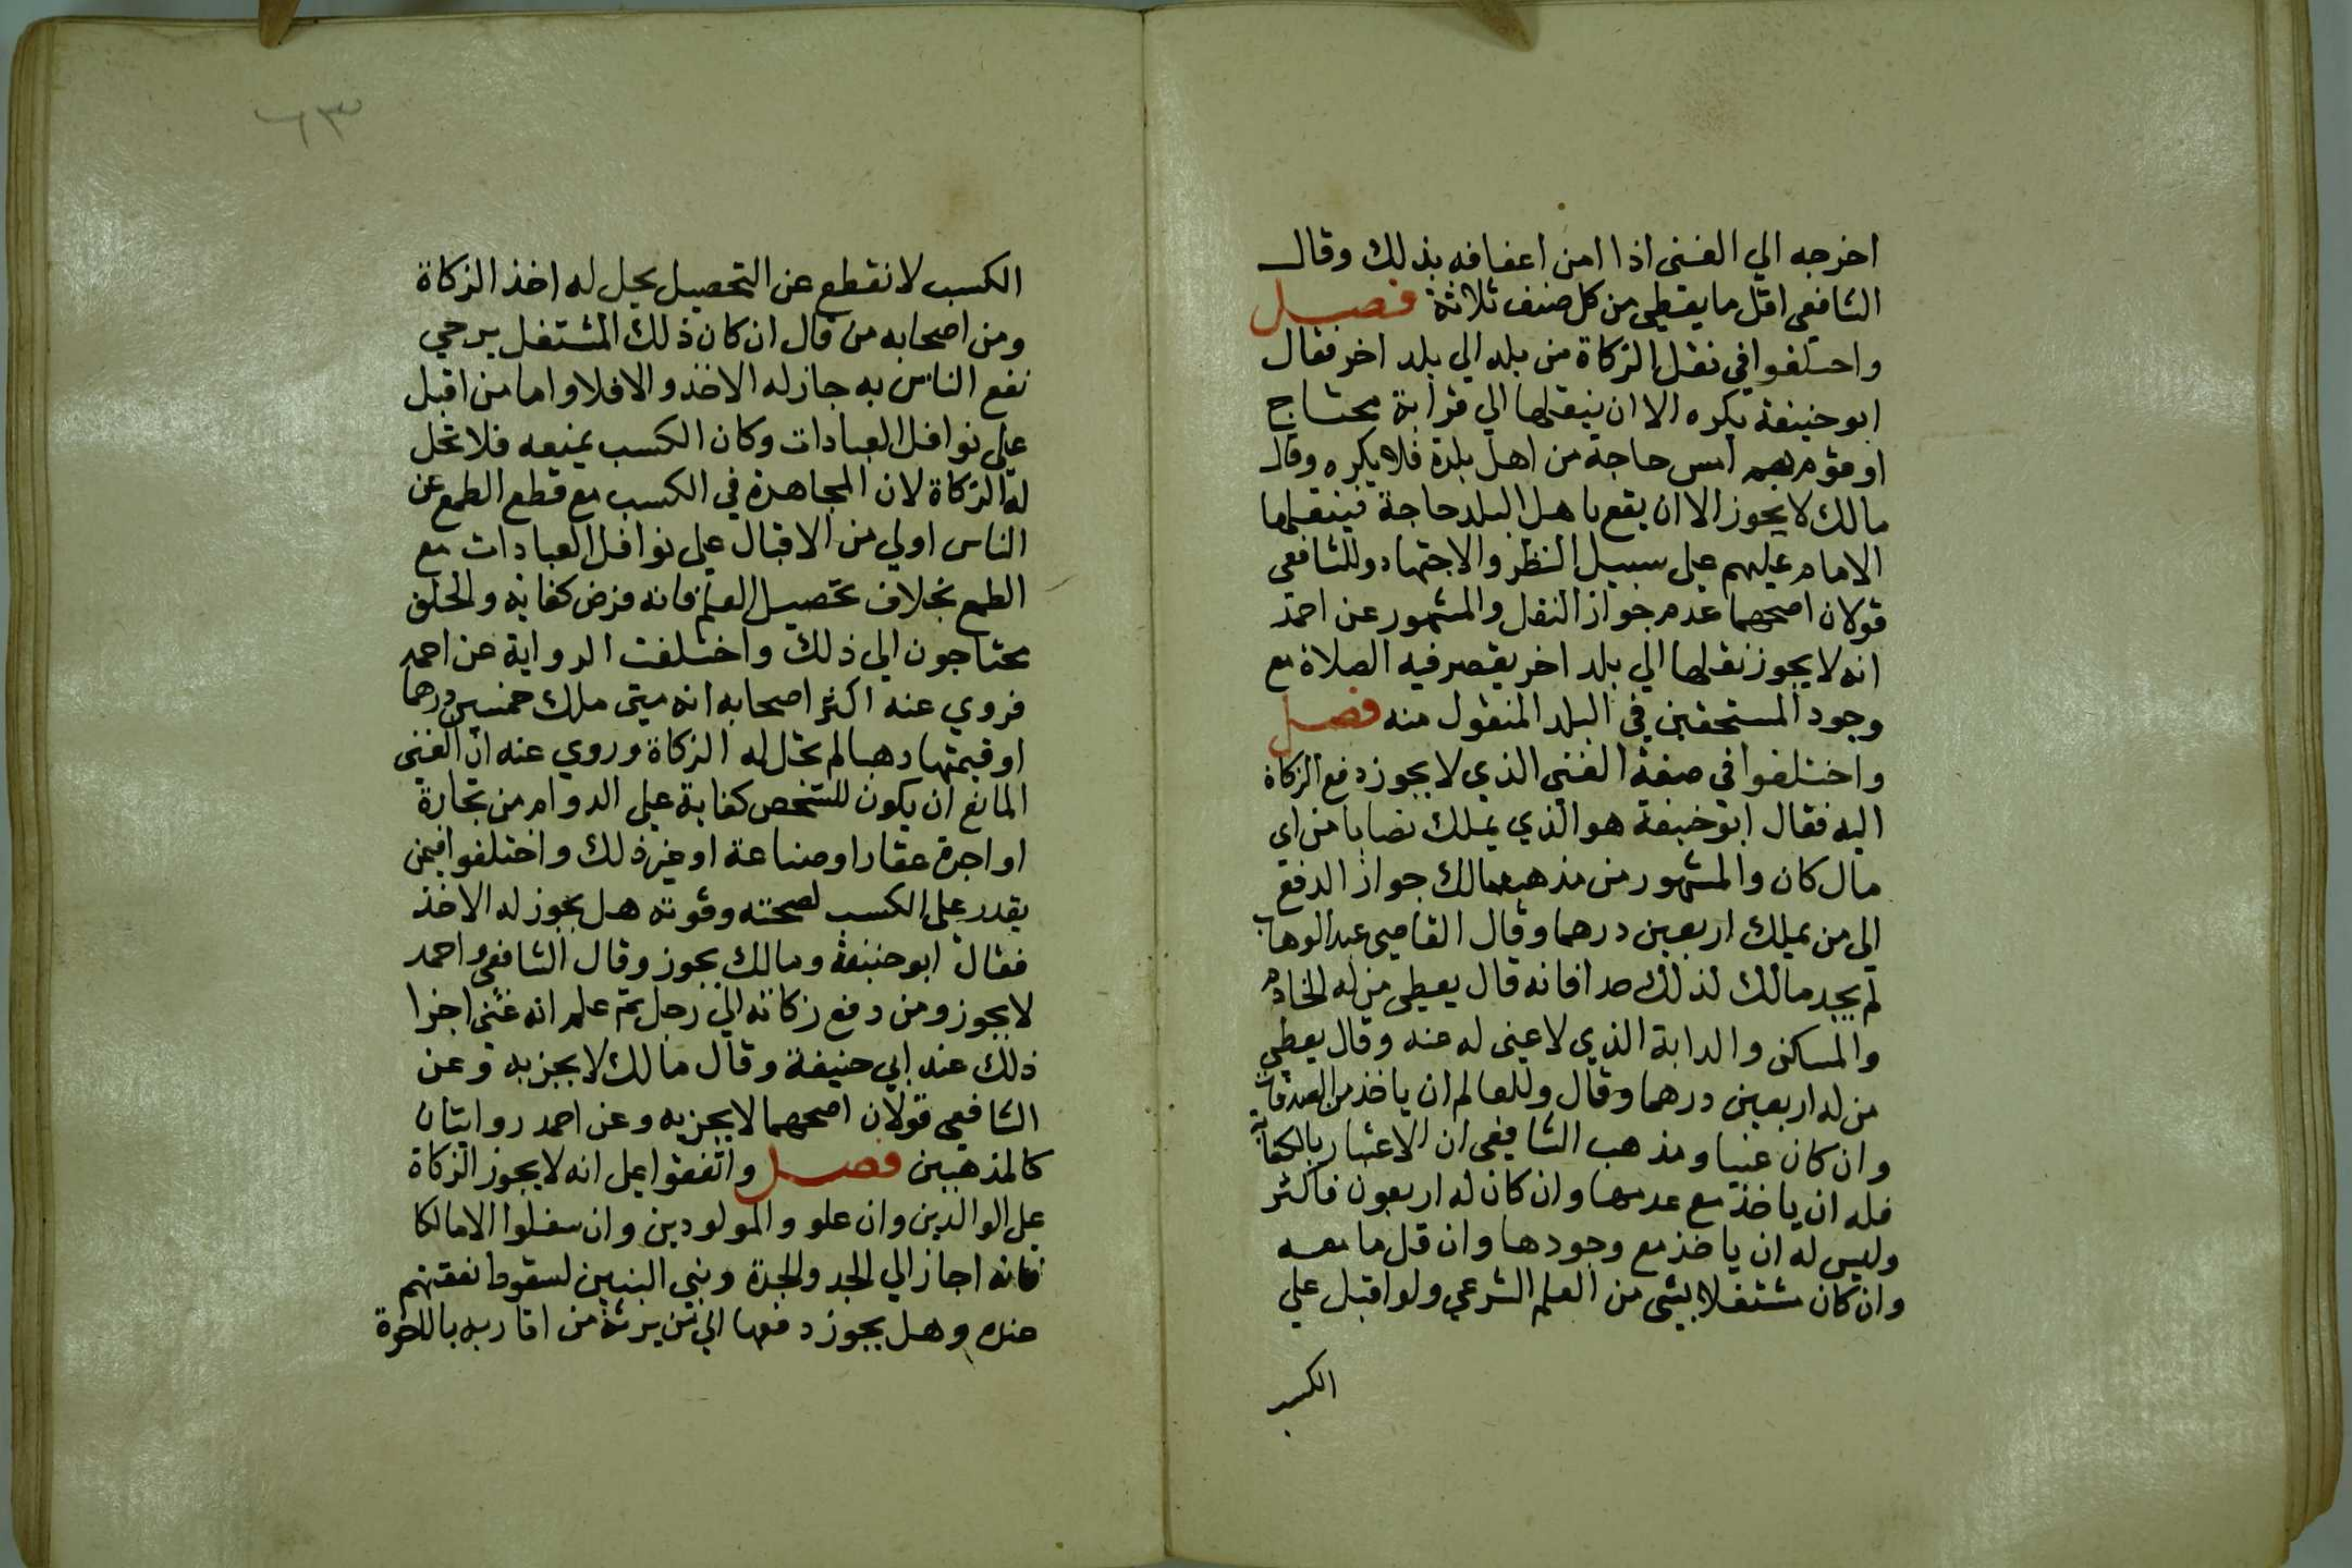 اخرجه الي الغني اذا امن اعفافه بذلك وقال
الشافعي اقل ما يعطي من كل صنف ثلاثة فصل
واختلفوا في نقل الزكاة من بلد الي بلد اخر فقال
ابو حنيفة يكره الا ان ينقلها الي قرابة محتاج
او قوم هم امس حاجة من اهل بلدة فلا يكره وقال
مالك لا يجوز الا ان يقع باهل البلد حاجة فينقلها
الامام عليهم علي سبيل النظر والاجتهاد وللشافعي
قولان اصحهما عدم جواز النقل والمشهور عن احمد
انه لا يجوز نقلها الي بلد اخر يقصر فيه الصلاة مع
وجود المستحقين في البلد المنقول منه فصل
واختلفوا في صفة الغني الذي لا يجوز دفع الزكاة
اليه فقال ابو حنيفة هو الذي يملك نصابا من اي
مال كان والمشهور من مذهب مالك جواز الدفع
الي من يملك اربعين درهما وقال القاضي عبد الوهاب
لم يجد مالك لذلك حدا فانه قال يعطي من له الخادم
والمسكن والدابة الذي لا غني له عنه وقال يعطي
من له اربعين درهما وقال وللعالم ان ياخذ من الصدقات
وان كان غنيا ومذهب الشافعي ان الاعتبار بالكفاية
فله ان ياخذ مع عدمها وان كان له اربعون فاكثر
وليس له ان ياخذ مع وجودها وان قل ما معه
وان كان مشتغلا بشي من العلم الشرعي ولو اقبل علي
الكسب
٦٣
الكسب لانقطع عن التحصيل يحل له اخذ الزكاة
ومن اصحابه من قال ان كان ذلك المشتغل يرجي
نفع الناس به جاز له الاخذ والا فلا واما من اقبل
علي نوافل العبادات وكان الكسب يمنعه فلا تحل
له الزكاة لان المجاهدة في الكسب مع قطع الطمع عن
الناس اولي من الاقبال علي نوافل العبادات مع
الطمع بخلاف تحصيل العلم فانه فرض كفاية والخلق
محتاجون الي ذلك واختلفت الرواية عن احمد
فروي عنه اكثر اصحابه انه متي ملك خمسين درهما
او قيمتها دهبا لم تحل له الزكاة وروي عنه ان الغني
المانع ان يكون للشخص كفاية علي الدوام من تجارة
او اجرة عقار او صناعة او غير ذلك واختلفوا فيمن
يقدر علي الكسب لصحته وقوته هل يجوز له الاخذ
فقال ابو حنيفة ومالك يجوز وقال الشافعي واحمد
لا يجوز ومن دفع زكاته الي رجل ثم علم انه غني اجزا
ذلك عند ابي حنيفة وقال مالك لا يجزيه وعن
الشافعي قولان اصحهما لا يجزيه وعن احمد روايتان
كالمذهبين فصل واتفقوا علي انه لا يجوز الزكاة
علي الوالدين وان علو والمولودين وان سفلوا الا مالكا
فانه اجاز الي الجد والجدة وبني البنين لسقوط نفقتهم
عنده وهل يجوز دفعها الي من يرثه من اقاربه بالاخوة